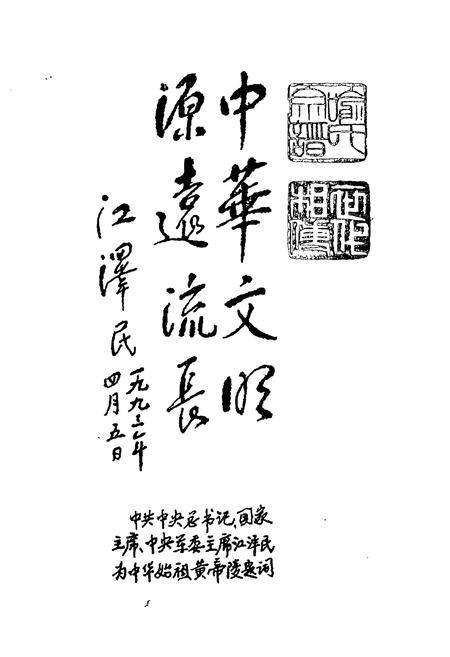 世代
相傳
中華文明
源遠流長
江澤民
一九九三年
四月五日
中共中央总书记、国家
主席、中央军委主席江泽民
为中华始祖黄帝陵题词